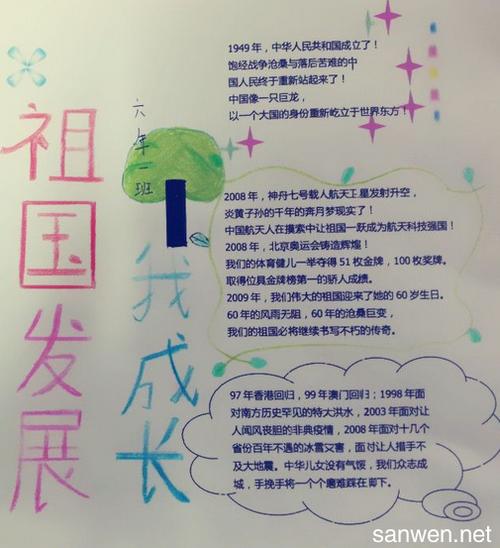 祖国发展
我成长
六年一班
1949年，中华人民共和国成立了！
饱经战争沧桑与落后苦难的中
国人民终于重新站起来了！
中国像一只巨龙，
以一个大国的身份重新屹立于世界东方！
2008年，神舟七号载人航天工星发射升空，
炎黄子孙的千年的奔月梦现实了！
中国航天人在摸索中让祖国一跃成为航天科技强国！
2008年，北京奥运会铸造辉煌！
我们的体育健儿一举夺得51枚金牌，100枚奖牌。
取得位具金牌榜第一的骄人成绩。
2009年，我们伟大的祖国迎来了她的60岁生日。
60年的风雨无阻，60年的沧桑巨变，
我们的祖国必将继续书写不朽的传奇。
97年香港回归，99年澳门回归；1998年面
对南方历史罕见的特大洪水，2003年面对让
人闻风丧胆的非典疫情，2008年面对十几个
省份百年不遇的冰雪灾害，面对让人措手不
及大地震。中华儿女没有气馁，我们众志成
城，手挽手将一个个磨难踩在脚下。
sanwen.net